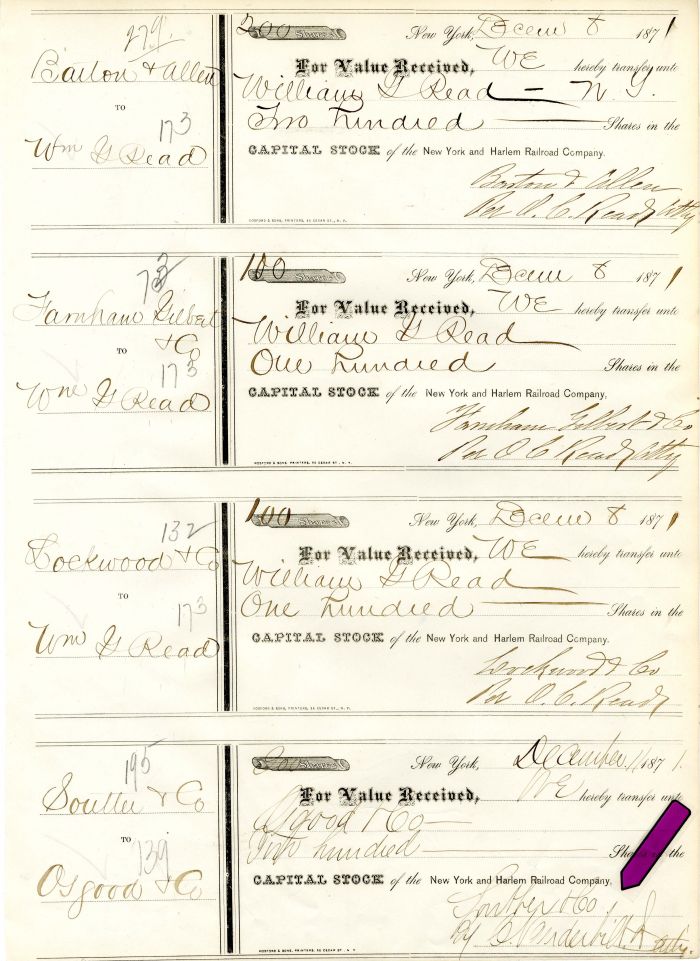 279.
Barton & Allen
TO
173
Wm G Read
200 Shares
New York, Decem 8 1871
WE
For Value Received, hereby transfer unto
William G Read — N.Y.
Two hundred Shares in the
CAPITAL STOCK of the New York and Harlem Railroad Company.
Barton & Allen
Per O. C. Read Atty
HOSFORD & SONS, PRINTERS, 56 CEDAR ST., N. Y.
Farnham Gilbert
& Co
TO
173
Wm G Read
100
New York, Decem 8 1871
WE
For Value Received, hereby transfer unto
William G Read
One hundred Shares in the
CAPITAL STOCK of the New York and Harlem Railroad Company,
Farnham Gilbert & Co
Per O C Read Atty
HOSFORD & SONS, PRINTERS, 56 CEDAR ST., N. Y.
132
Lockwood & Co
TO
173
Wm G Read
100 Shares
New York, Decem 8 1871
WE
For Value Received, hereby transfer unto
William G Read
One hundred Shares in the
CAPITAL STOCK of the New York and Harlem Railroad Company.
Lockwood & Co
Per O. C. Read
HOSFORD & SONS, PRINTERS, 56 CEDAR ST., N. Y.
195
Soutter & Co
TO
139
Osgood & Co
200 Shares
New York, December 11 1871.
WE
For Value Received, hereby transfer unto
Osgood & Co
Two hundred Shares in the
CAPITAL STOCK of the New York and Harlem Railroad Company,
Soutter & Co
By C. Vanderbilt Jr Atty.
HOSFORD & SONS, PRINTERS, 56 CEDAR ST., N. Y.